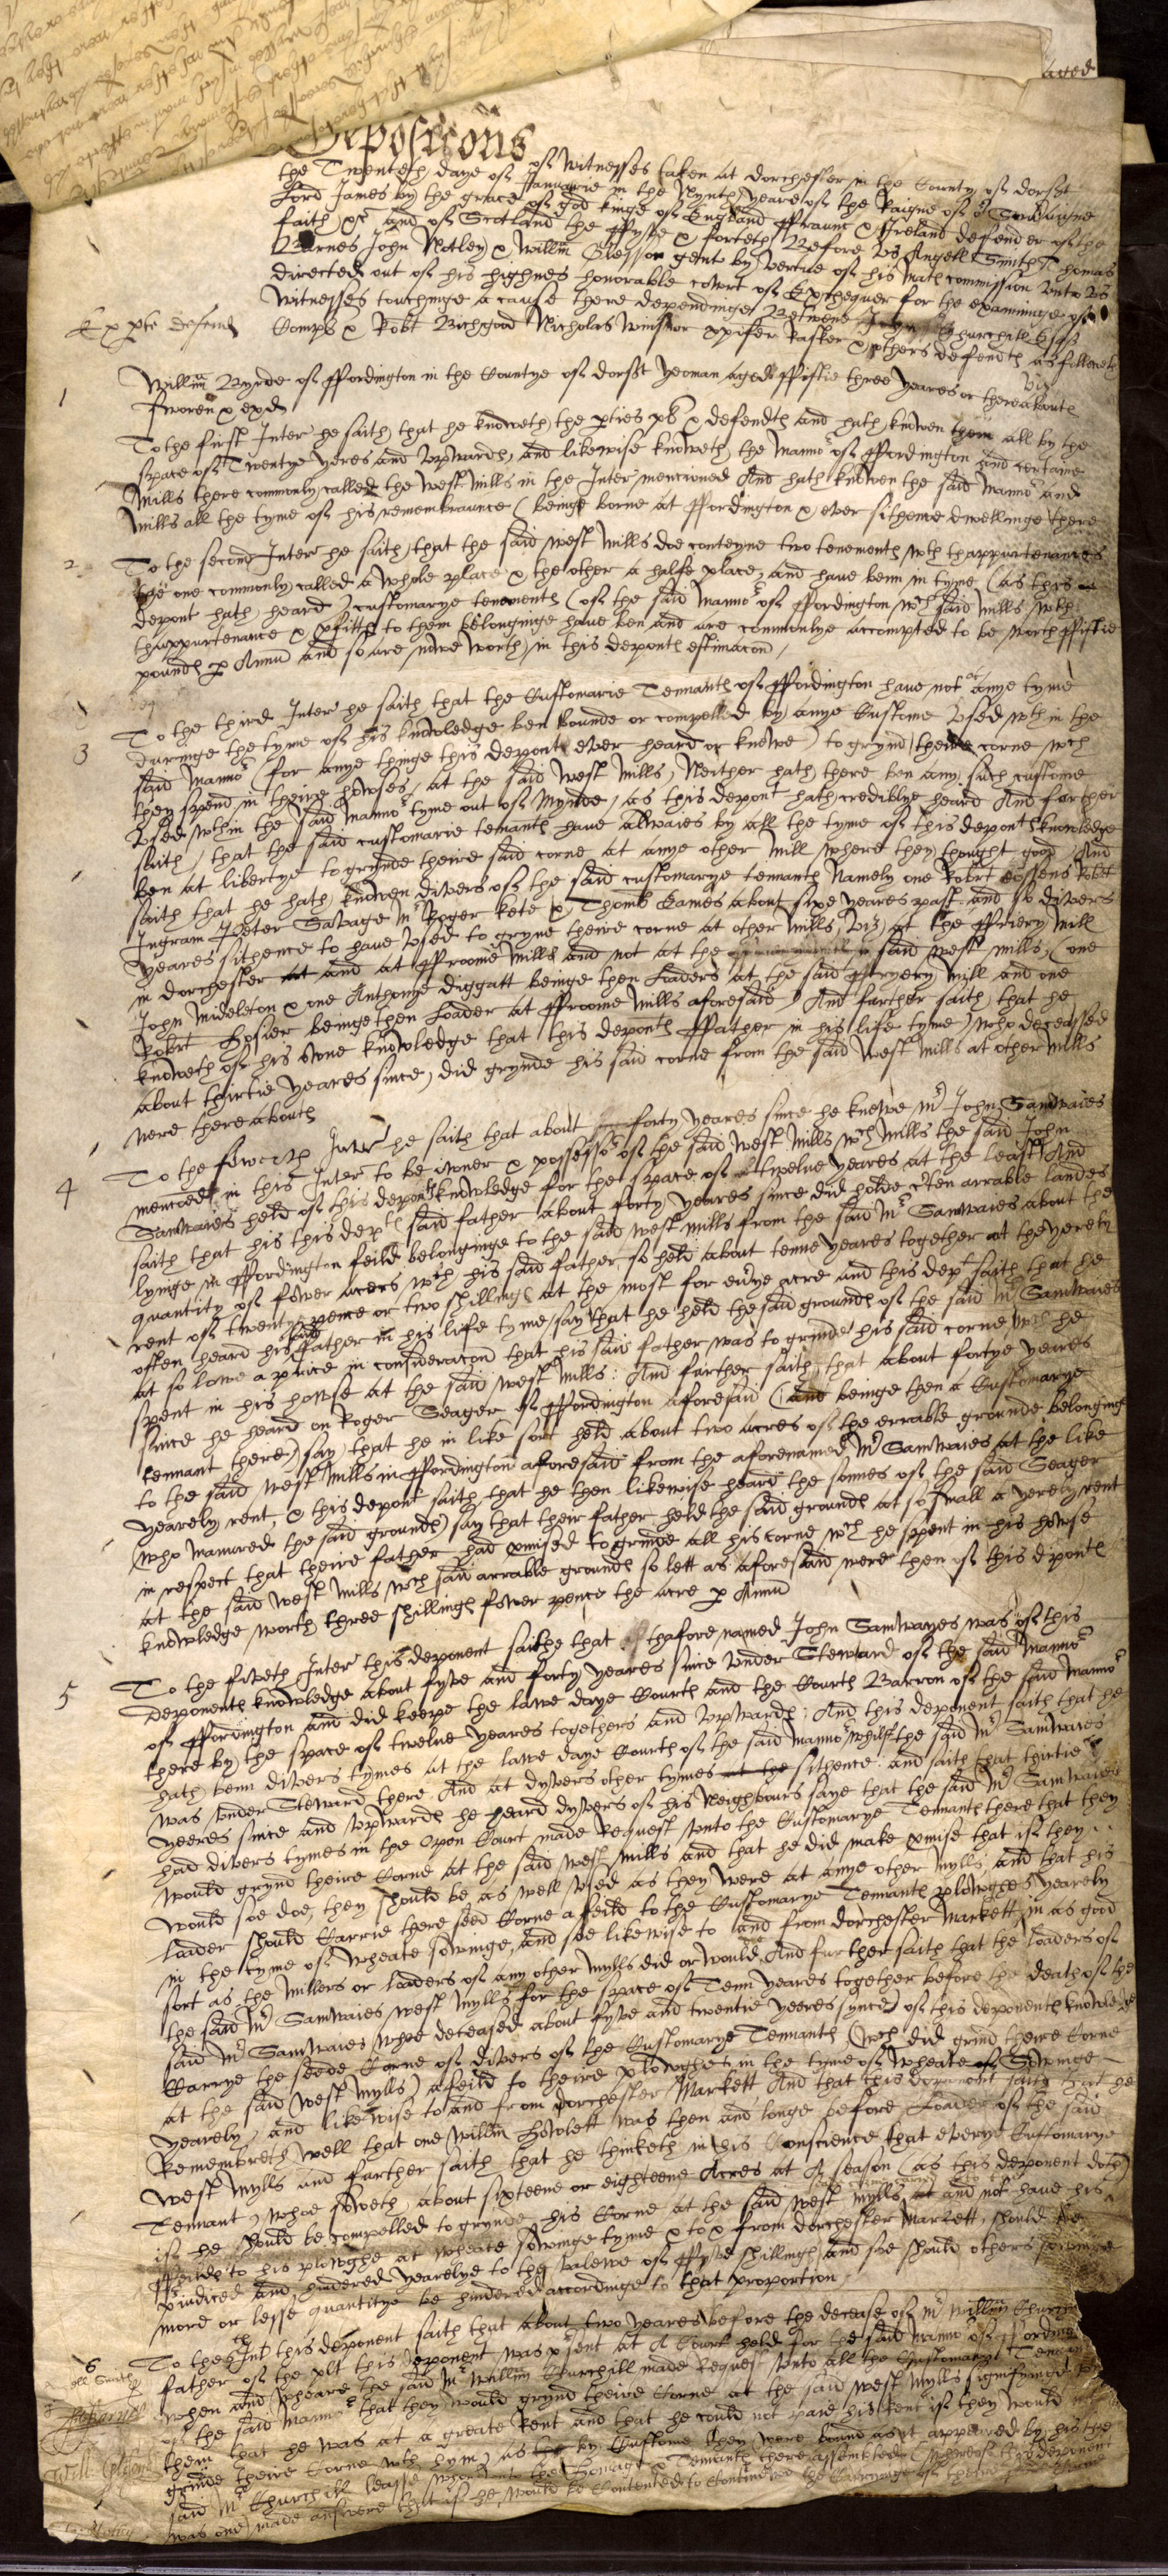 aged
Deposicõns
of Witnesses taken at Dorchester in the County of Dorset
the Twenteth daye of Januarie in the Nynth yeare of the Raigne of oʳ Soveraigne
Lord James by the grace of god kinge of England ffraunc & Ireland defender of the
faith &c and of Scotland the ffyve & forteth Before us Angell Smith Thomas
Barnes John Notley & Willm̃ Glesson gent by vertue of his Maᵗˢ commission unto us
directed out of his highnes honorable court of Exchequer for the examininge of
Witnesses touchinge a cause there dependinge Betwene John Churchill Esqʳ
Compˡᵗ & Robt Bichgood Nicholas Winsor xpõfer Rasker & others defendᵗˢ as followeth
Ex pte defend
viz
1 Willm̃ Byrde of ffordington in the Countye of Dorset yeoman aged ffiftie three yeares or thereaboutˢ
sworen & exd
To the first Inter he saith that he knoweth the pties pˡ & defendtˢ and hath knowen them all by the
space of Twentye yeres and upwardˢ, and likewise knoweth the Mannoʳ of ffordington and certaine
Mills there commonly called the West Mills in the Inter mencioned And hath knowen the said Mannoʳ and
Mills all the tyme of his remembraunce (beinge borne at ffordington & ever sithence dwellinge there
2 To the second Inter he saith that the said West Mills doe conteyne two tenementˢ wᵗʰ thappurtenances
the one commonly called a whole place & the other a halfe place, and have benn in tyme (as this
depont hath heard) customarye tenementˢ of the said Mannoʳ of ffordington wᶜʰ said Mills wᵗʰ
thappurtenance & pfittˢ to them belonginge have ben and are commonlye accompted to be worth ffiftie
poundˢ p Annũ and so are nowe worth in this depontˢ estimacon,
3 To the third Inter he saith that the Customarie Tennantˢ of ffordington have not at anye tyme
duringe the tyme of his knowledge ben bounde or compelled by anye Custome used wᵗʰin the
said Mannoʳ (for anye thinge this depont ever heard or knowe) to grynd theire corne wᶜʰ
they spend in theire howses, at the said West Mills, Neither hath there ben any such custome
used wᵗʰin the said Mannoʳ tyme out of Mynde, as this depont hath crediblye heard And further
saith that the said customarie tenantˢ have allwaies by all the tyme of this depontˢ knowledge
ben at libertye to grynde theire said corne at anye other Mill where they thought good, And
saith that he hath knowen divers of the said customarye tennantˢ Namely one Robrt Cossens Robrt
Ingram Peter Savage Mʳ Roger Kete & Thoms Eames about sixe yeares past and so divers
yeares sithence to have used to gryne theire corne at other Mills, viz) at the ffriery Mill
in Dorchester at and at ffroome Mills and not at the said West Mills, (one
John Mideleton & one Anthonye Diggatt beinge then Loaders at the said ffryery Mill and one
Robrt Hosier beinge then Loader at ffroome Mills aforesaid) And further saith that he
knoweth of his owne knowledge that this depontˢ ffather in his life tyme) who deceassed
about thirtie yeares since, did grynde his said corne from the said West Mills at other Mills
nere there aboutˢ
4 To the fowerth Inter he saith that about forty yeares since he knewe Mʳ John Samwaies
mencoed in this Inter to be owner & possessoʳ of the said West Mills wᶜʰ Mills the said John
Samwaies held of this depontˢ knowledge for the space of twelve yeares at the least And
saith that his this deptˢ said father about forty yeares since did holde ten arrable landes
lyinge in ffordington feild belonginge to the said West Mills from the said Mʳ Samwaies about the
quantity of fower acers wᶜʰ his said father so held about tenne yeares together at the yerely
rent of twenty pence or two shillingˢ at the most for evʳye acre and this dept saith that he
often heard his said father in his life tyme, say that he held the said groundˢ of the said Mʳ Samwaies
at so lowe a price in consideracon that his said father was to grinde his said corne, wᶜʰ he
spent in his howse at the said West Mills: And further saith that about fortye yeares
since he heard on Roger Seager of ffordington aforesaid (and beinge then a Customarye
tennant there) say, that he in like sort held about two acres of the errable grounde belonginge
to the said West Mills in ffordington aforesaid from the aforenamed Mʳ Samwaies at the like
yearely rent, & this depont saith that he then likewise heard the sonnes of the said Seager
(who manured the said groundˢ) say that their father held the said groundˢ at so small a yerely rent
in respect that theire father had pmised to grinde all his corne wᶜʰ he spent in his howse
at the said West Mills wᶜʰ said arrable groundˢ so lett as aforesaid were then of this dipontˢ
knowledge worth three shillingˢ fower pence the acre p Annũ
5 To the fiveth Inter this deponent saithe that thafore named John Samwayes was of this
deponentˢ knowledge about fyve and forty yeares since Under Steward of the said Mannoʳ
of ffordington and did keepe the lawe daye Courtˢ and the Courtˢ Barron of the said Mannoʳ
there by the space of twelve yeares togethers and upwardˢ: And this deponent saith that he
hath benn divers tymes at the lawe daye Courtˢ of the said Mannoʳ whilst the said Mʳ Samwaies
was under Steward there And at dyvers other tymes at the sithence: and saith that thirtie
yeeres since and upwardˢ he heard dyvers of his Neighbours saye that the said Mʳ Samwaies
had divers tymes in the Open Court made Request unto the Customarye Tennantˢ there that they
would grynd theire Corne at the said West Mills and that he did make pmise that if they
would soe doe, they should be as well used as they were at anye other Mylls, and that his
loader should Carrie there seed Corne a feild to the Customarye Tennantˢ plowghes yearely
in the tyme of wheate sowinge, and soe likewise to and from Dorchester Markett, in as good
sort as the Millers or loaders of any other Mylls did or would. And further saith that the loaders of
the said Mʳ Samwaies West Mylls for the space of Tenn yeares together before the death of the
said Mʳ Samwaies (whoe deceased about fyve and twentie yeeres synce) of this deponentˢ knowledge
Carrye the seede Corne of divers of the Customarye Tennantˢ (wᶜʰ did grind theire Corne
at the said West Mylls) a feild to theire plowghes in the tyme of wheate of Sowinge
yearely, and likewise to and from Dorchester Markett, And that this deponent saith that he
Remembreth well that one Willm̃ Howlett was then and longe before Loader of the said
West Mylls and further saith that he thinketh in his Conscience that everye Customarye
Tennant, whoe soweth about sixteene or eighteene Acres at A season (as this deponent doth)
if he should be compelled to grynde his Corne at the said West Mylls and not have his
ffeild to his plowghe at wheate sowinge tyme & to & from Dorchester Markett, should be
piudiced and hindered yearelye to the valewe of ffyve shillingˢ and soe should others sowinge
more or lesse quantitye be hindered accordinge to that proportion,
6 To the 6th Int this deponent saith that about two yeares before the decease of Mʳ Willm̃ Churchill
father of the plt this deponent was pˢent at A Court held for the said Mannoʳ of ffordington
when and wheare the said Mʳ Willm̃ Churchill made Request unto all the Customarye Tennantˢ
of the said Mannoʳ that they would grynd theire Corne at the said West Mylls signifyinge
them that he was at a greate Rent and that he could not paie his Rent if they would not
grinde theire Corne wᵗʰ hym, as by Custome they were bound as it appeared by his the
said Mʳ Churchills leasse, whereunto the Homage & Tennantˢ there assembled (whereof this deponent
was one) made answere that if he would be Contented to Continewe the Carriage of theire